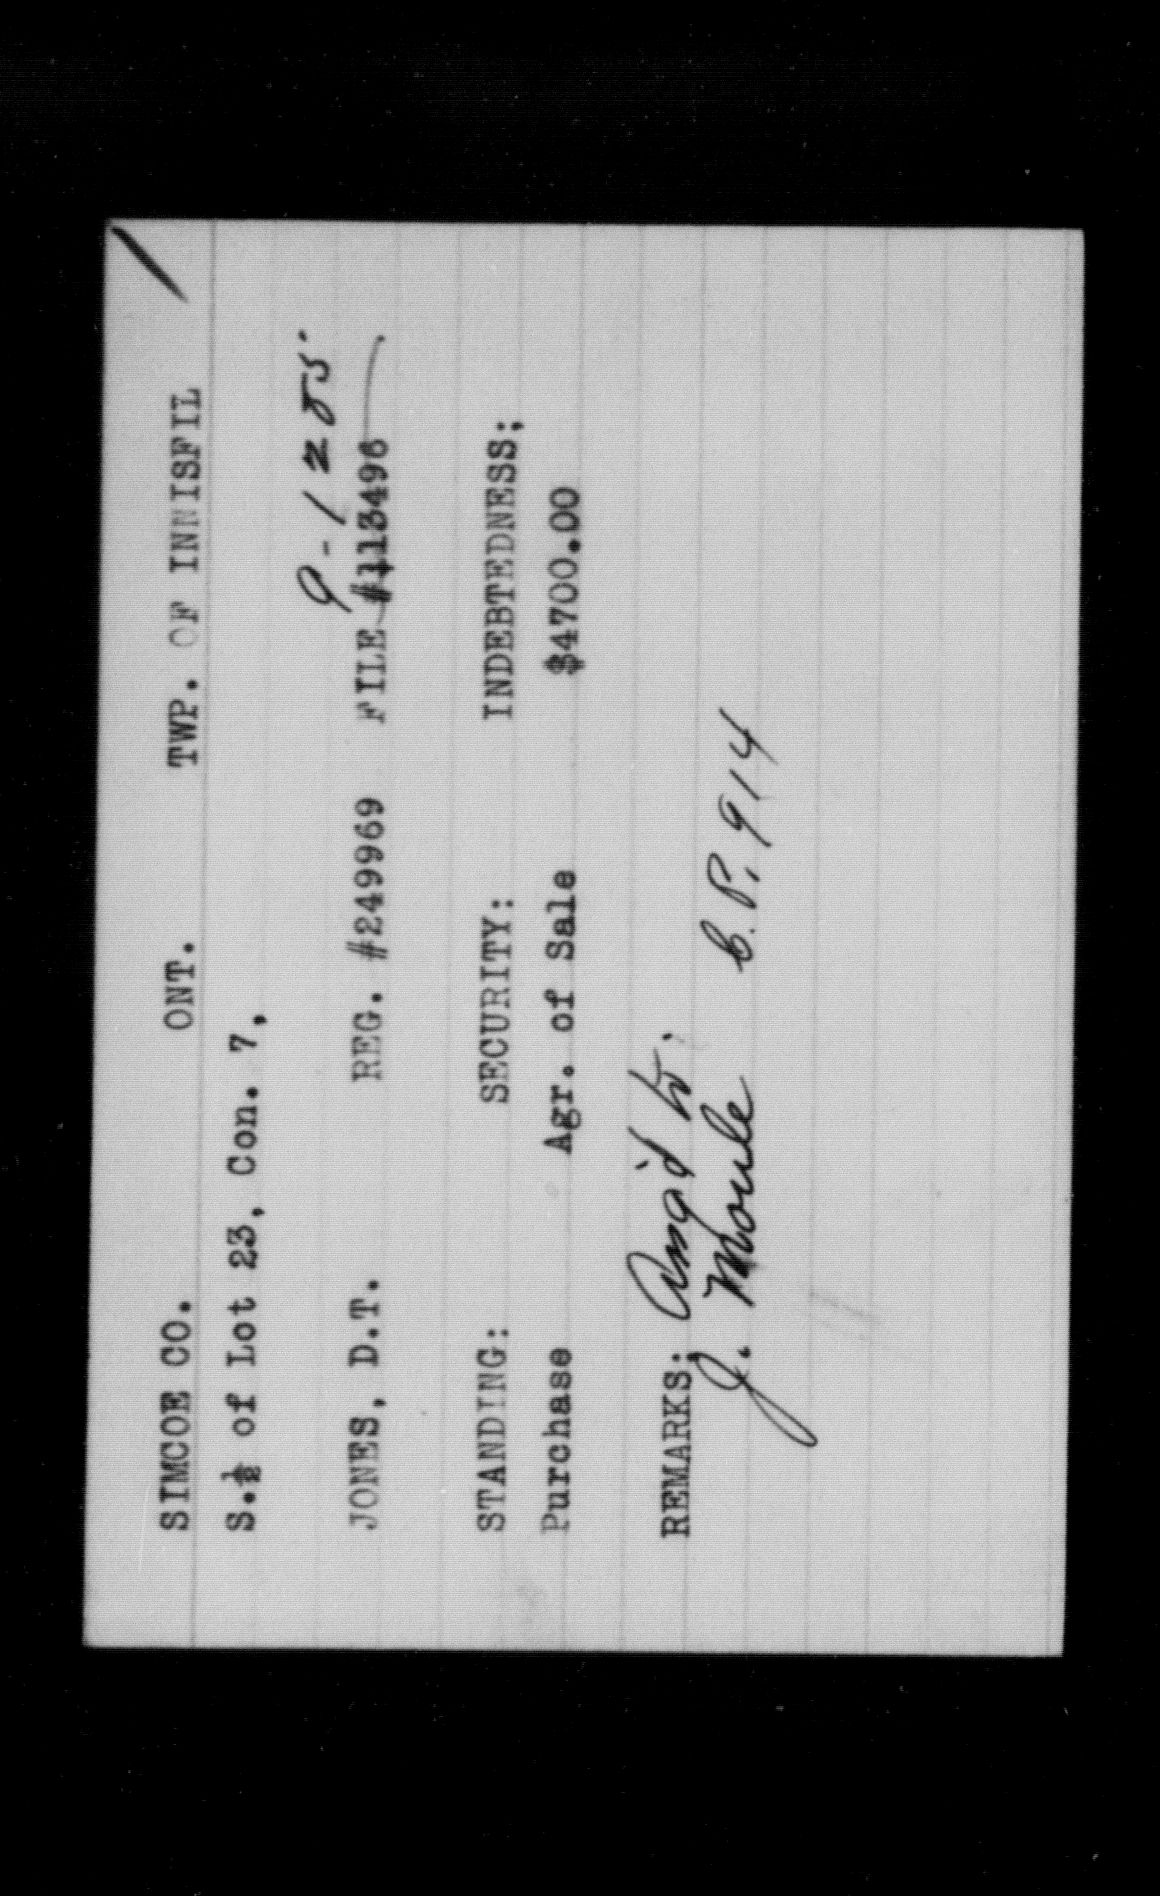 SIMCOE CO. ONT. TWP. OF INNISFIL
S.½ of Lot 23, Con. 7,
9-1255
JONES, D.T. REG. #249969 FILE #113496
STANDING: SECURITY: INDEBTEDNESS;
Purchase Agr. of Sale $4700.00
REMARKS: Assg'd to.
J. Moule C.P. 914